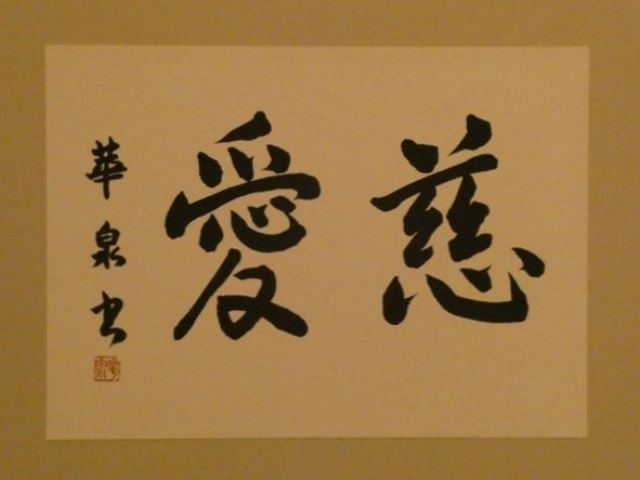 慈愛
華泉书